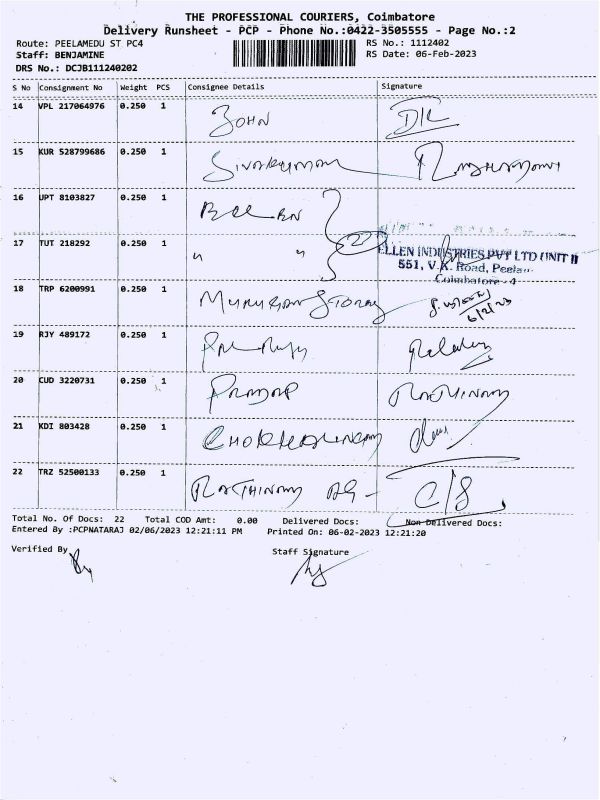 THE PROFESSIONAL COURIERS, Coimbatore
Delivery Runsheet - PCP - Phone No.:0422-3505555 - Page No.:2
Route: PEELAMEDU ST PC4 RS No.: 1112402
Staff: BENJAMINE RS Date: 06-Feb-2023
DRS No.: DCJB111240202
S No Consignment No Weight PCS Consignee Details Signature
14 VPL 217064976 0.250 1 JOHN
15 KUR 528799686 0.250 1 Sivakumar
16 UPT 8103827 0.250 1
17 TUT 218292 0.250 1 " "
ELLEN INDUSTRIES PVT LTD UNIT II
551, V.K. Road, Peela
Coimbatore - 4
18 TRP 6200991 0.250 1 Murugan Stores 6/2/23
19 RJY 489172 0.250 1
20 CUD 3220731 0.250 1 Pratap Rathinam
21 KDI 803428 0.250 1
22 TRZ 52500133 0.250 1 Rathinam AG - C/S
Total No. Of Docs: 22 Total COD Amt: 0.00 Delivered Docs: Non Delivered Docs:
Entered By :PCPNATARAJ 02/06/2023 12:21:11 PM Printed On: 06-02-2023 12:21:20
Verified By Staff Signature